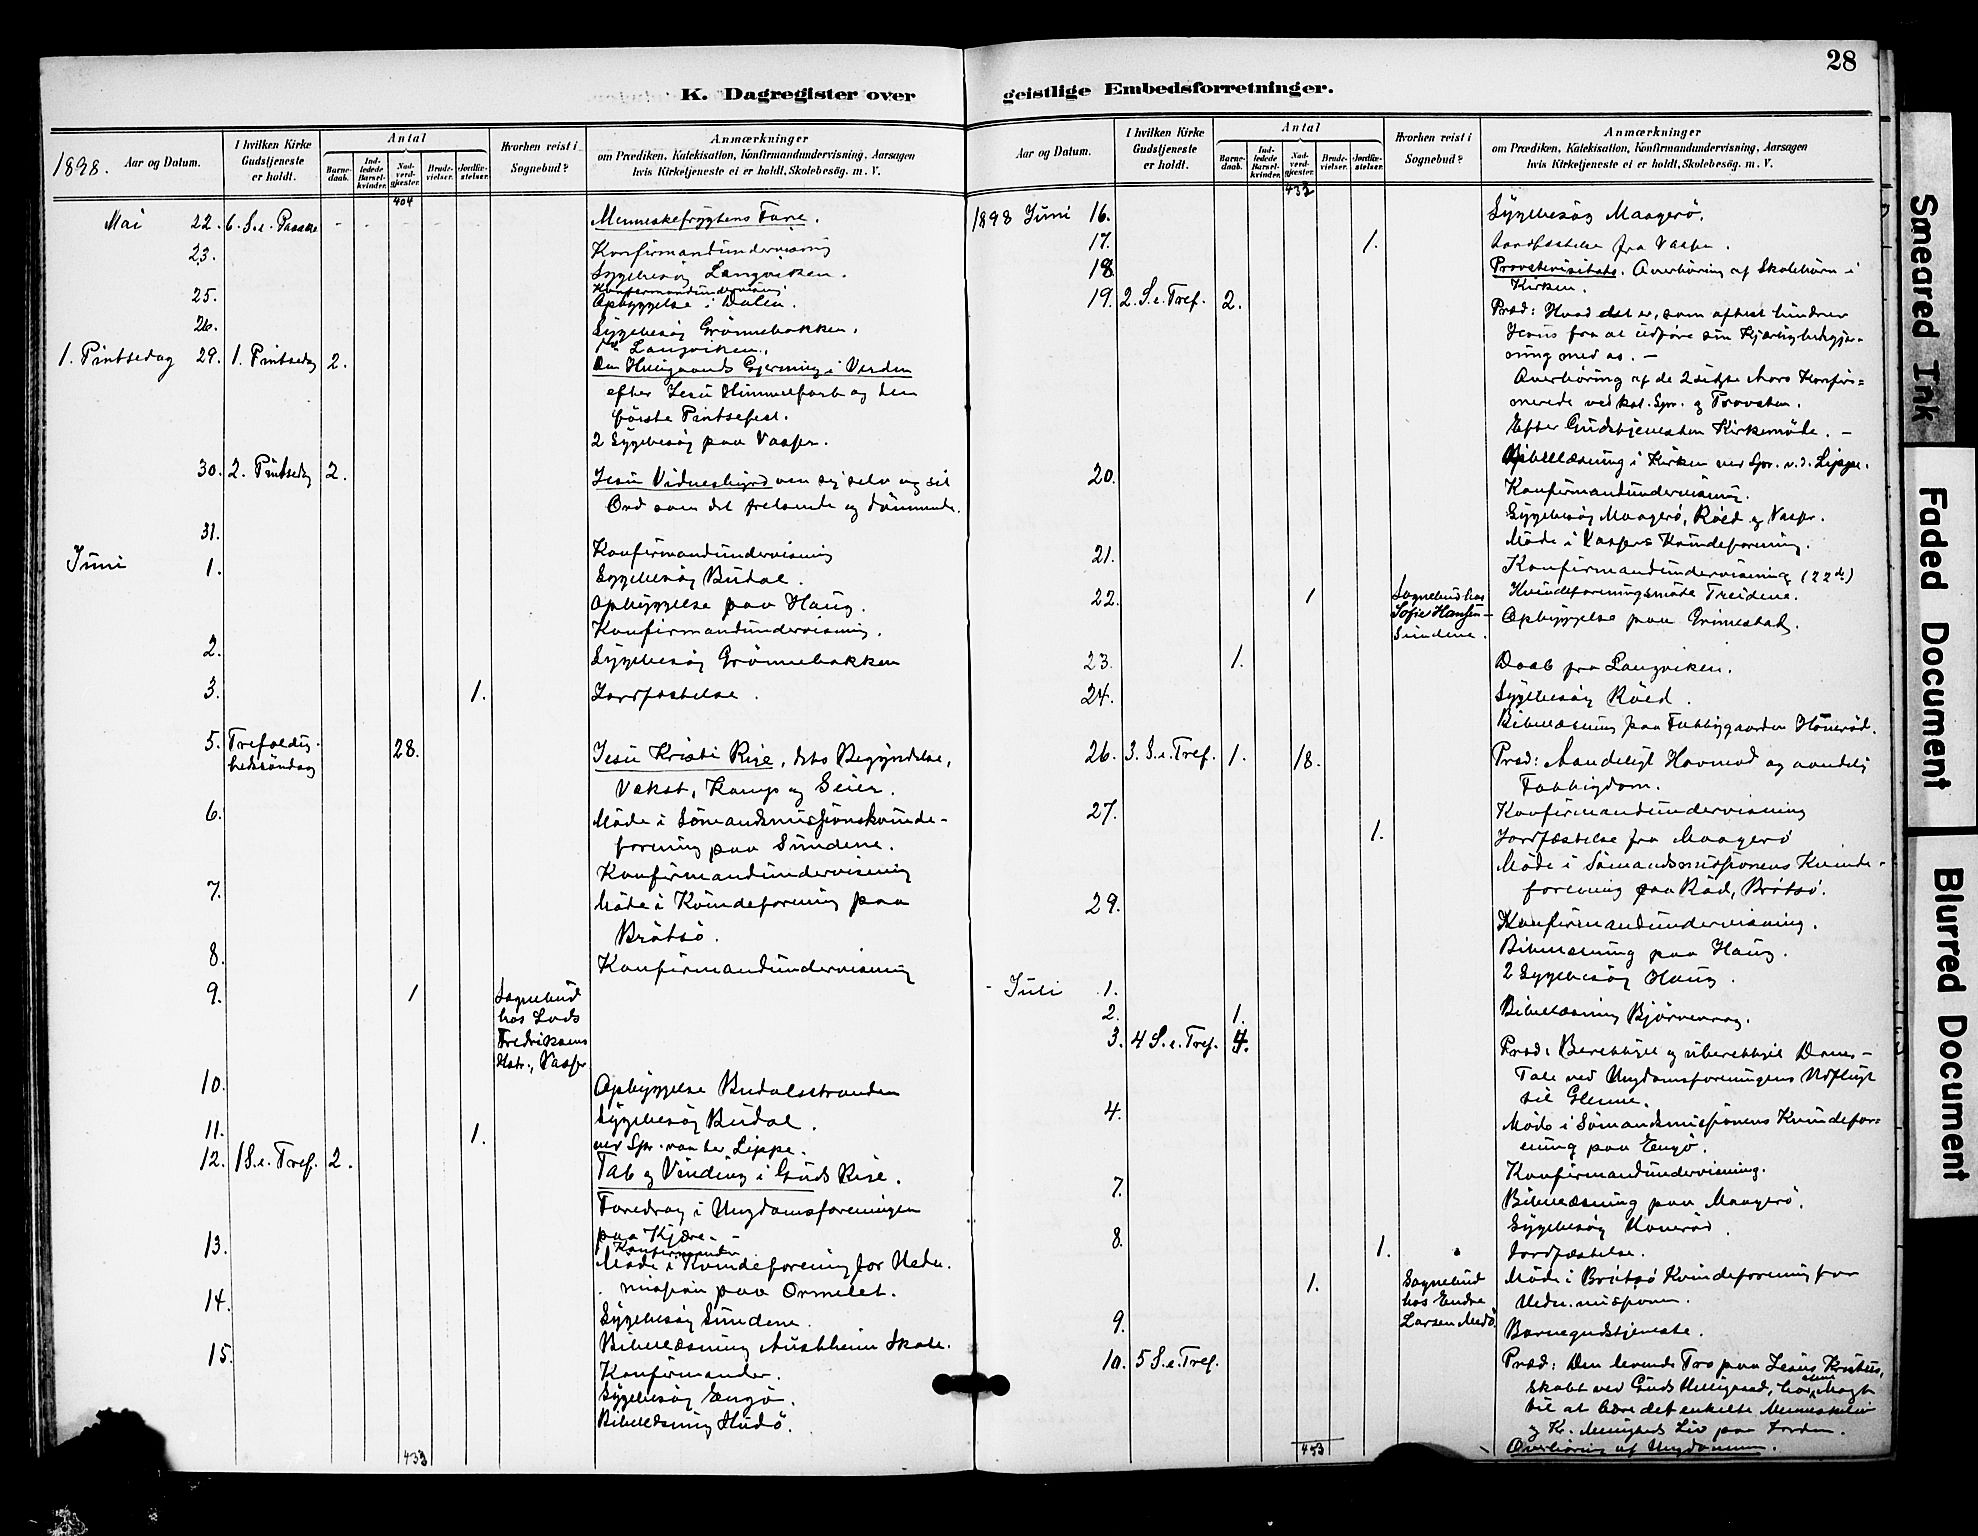 28
K. Dagregister over
geistlige Embedsforretninger.
1898. Aar og Datum.
I hvilken Kirke Gudstjeneste er holdt.
Antal
Barne-daab.
Ind-ledede Barsel-kvinder.
Nad-verd-gjæster.
Brude-vielser.
Jordfæ-stelser.
Hvorhen reist i Sognebud?
Anmærkninger
om Prædiken, Katekisation, Konfirmandundervisning, Aarsagen
hvis Kirketjeneste ei er holdt, Skolebesög. m. V.
404
Mai 22. 6. S. e. Paaske Menneskefrygtens Fare.
23. Konfirmandundervisning
Sygebesög Langviken.
25. Konfirmandundervisning
Opbyggelse i Dalen.
26. Sygebesög Grönnebakken.
Langviken.
1. Pintsedag 29. 1. Pintsedag 2. Den Helligaands Gjerning i Verden
efter Jesu Himmelfart og den
første Pintsefest.
2 Sygebesög paa Vasser.
30. 2. Pintsedag 2. Jesu Vidnesbyrd om sig selv og sit
Ord som det frelsende og dömmende.
31. Konfirmandundervisning
Juni 1. Sygebesög Budal.
Opbyggelse paa Haug.
Konfirmandundervisning.
2. Sygebesög Grönnebakken
3. 1. Jordfæstelse.
5. Trefoldig-
hedssöndag 28. Jesu Kristi Rige, dets Begyndelse,
Vækst, Kamp og Seier.
6. Möde i Sömandsmissionskvinde-
forening paa Sundene.
Konfirmandundervisning
7. Möde i Kvindeforening paa
Brötsö.
8. Konfirmandundervisning
9. 1 Sognebud
hos Lods
Fredriksens
Vasser
10. Opbyggelse Budalsstranden
Sygebesög Budal.
11. 1.
ved Spr. van der Lippe.
12. 1 S. e. Tref. 2. Tab og Vinding i Guds Rige.
Foredrag i Ungdomsforeningen
paa Kjære.
13. Konfirmander
Möde i Kvindeforening for Hedn.
mission paa Ormelet.
14. Sygebesög Sundene.
Bibellæsning Austbheim Skole.
15. Konfirmander.
Sygebesög Engö.
Bibellæsning Hudö.
433
Aar og Datum.
I hvilken Kirke Gudstjeneste er holdt.
Antal
Barne-daab.
Ind-ledede Barsel-kvinder.
Nad-verd-gjæster.
Brude-vielser.
Jordfæ-stelser.
Hvorhen reist i Sognebud?
Anmærkninger
om Prædiken, Katekisation, Konfirmandundervisning, Aarsagen
hvis Kirketjeneste ei er holdt, Skolebesög. m. V.
433
1898 Juni 16. Sygebesög Maagerö.
17. 1. Jordfæstelse fra Vasser.
18 Provstevisitats. Overhöring af Skolebörn i
Kirken.
19. 2. S. e. Tref. 2. Præd: Hvad det er, som oftest hindrer
Jesus fra at udföre sin Kjærligheds
gjerning med os. —
Overhöring af de 2 sidste Aars Konfir=
merede ved kst. Spr. og Provsten.
Efter Gudstjenesten Kirkemöde. —
Bibellæsning i Kirken ved Spr. v. d. Lippe.
20. Konfirmandundervisning.
Sygebesög Maagerö, Röed og Vasser.
Möde i Vassers Kvindeforening.
21. Konfirmandundervisning (22de)
22. 1 Sognebud hos
Sofie Hansen
Sundene. Kvindeforeningsmöde Treidene.
Opbyggelse paa Grimestad.
23. 1. Daab fra Langviken.
24. Sygebesög Röed.
Bibellæsning paa Fattiggaarden Hönseröd.
26. 3. S. e. Tref. 1. 18. Præd: Aandeligt Hovmod og aandelig
Fattigdom.
27. Konfirmandundervisning
1. Jordfæstelse fra Maagerö
Möde i Sömandsmissionens Kvinde-
forening paa Röd, Brötsö.
29. Konfirmandundervisning.
Bibellæsning paa Haug.
2 Sygebesög Haug.
Juli 1.
2. 1. Bibellæsning Bjørnevaag.
3. 4 S. e. Tref. 4. Præd: Berettiget og uberettiget Dom-
Tale ved Ungdomsforeningens Udflugt
til Glenne.
4. Möde i Sömandsmissionens Kvindefor=
ening paa Engö.
Konfirmandundervisning.
7. Bibellæsning paa Maagerö.
Sygebesög Honeröd.
8. 1. Jordfæstelse.
1. Sognebud
hos Endre
Larsen Medö Möde i Brötsö Kvindeforening for
Hedn. missionen.
9. Barnegudstjeneste.
10. 5 S. e. Tref. Præd: Den levende Tro paa Jesus Kristus,
skabt ved Guds Helligaand, har alene Magt
til at bære det enkelte Menneskeliv
og Kr. Menigheds Liv paa Jorden.
Overhöring af Ungdommen.
453
Smeared Ink
Faded Document
Blurred Document